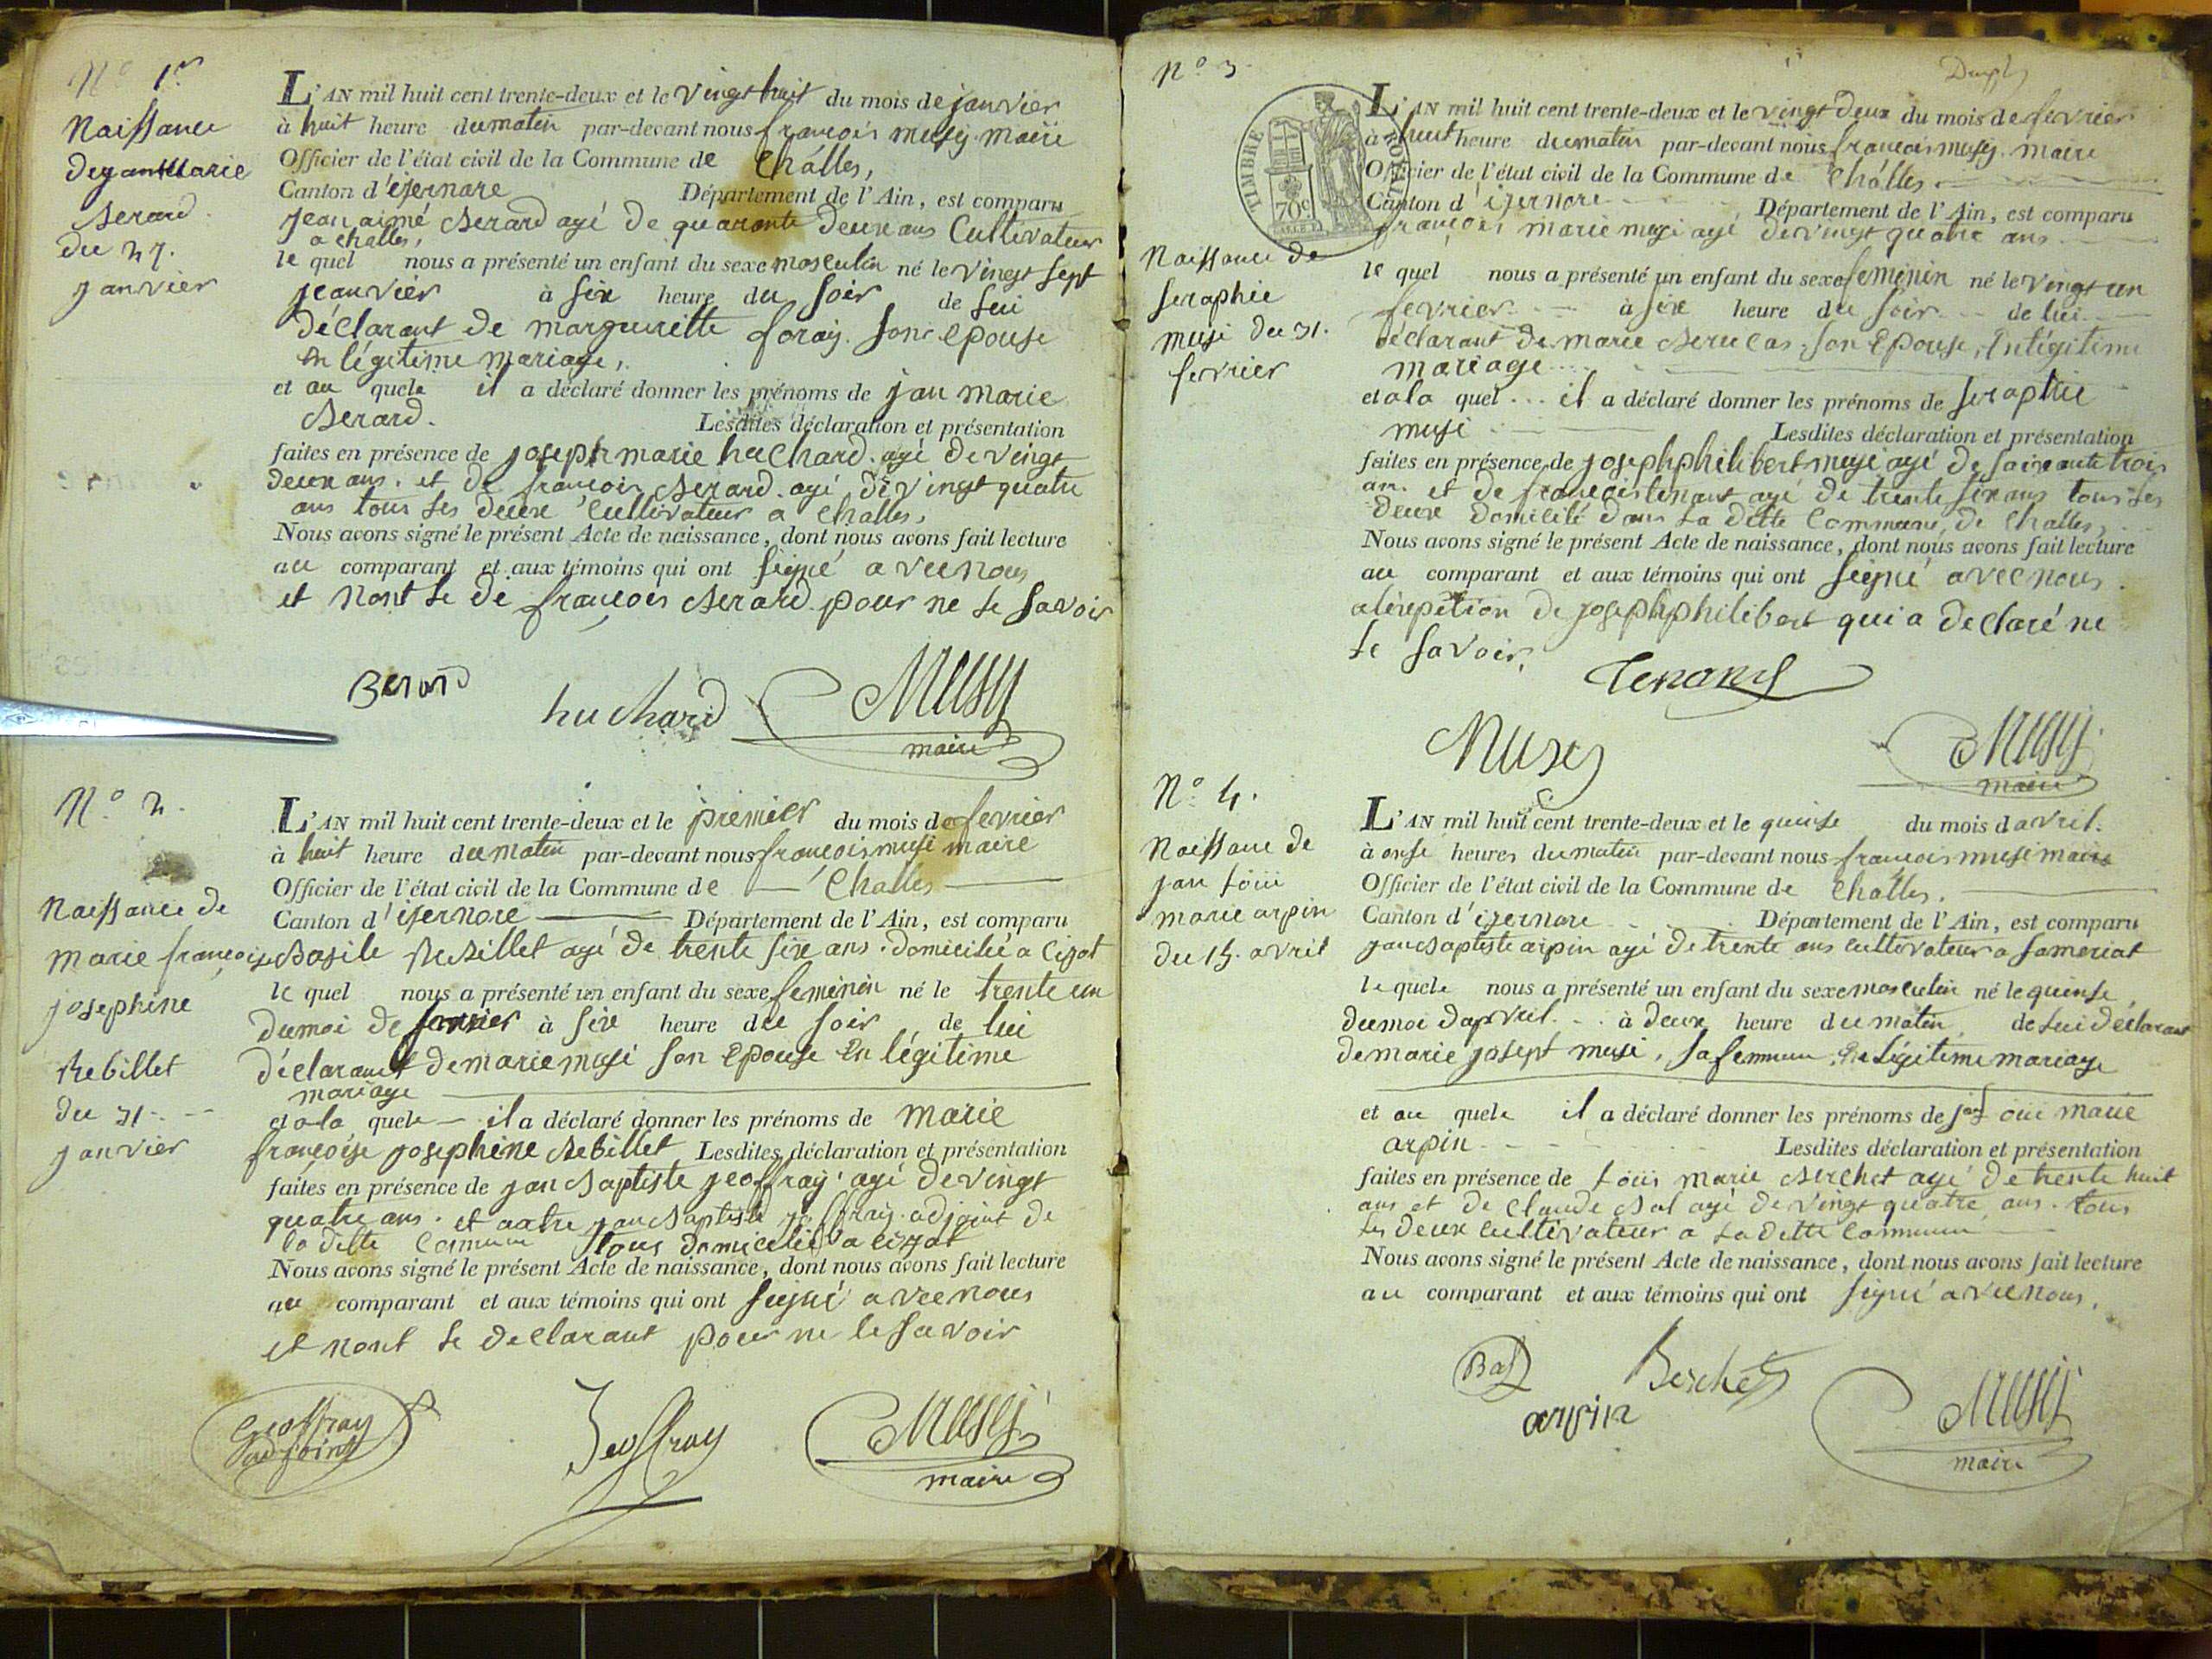 N° 1er
Naissance
de jan Marie
Berard
du 27.
janvier
L'AN mil huit cent trente-deux et le vingt huit du mois de janvier
à huit heure du matin par-devant nous françois musy maire
Officier de l'état civil de la Commune de Challes,
Canton d'izernore Département de l'Ain, est comparu
jean aimé Berard agé de quarante deux ans Cultivateur
a challes,
le quel nous a présenté un enfant du sexe masculin né le vingt sept
jeanvier à six heure du soir de lui
déclarant de margueritte foray son epouse
en légitime mariage,
et au quele il a déclaré donner les prénoms de jan marie
Berard. Lesdites déclaration et présentation
faites en présence de joseph marie huchard agé de vingt
deux ans. et de françois Berard agé de vingt quatre
ans tous les deux Cultivateur a Challes,
Nous avons signé le présent Acte de naissance, dont nous avons fait lecture
au comparant et aux témoins qui ont signé avec nous
et nont le dé françois Berard pour ne le savoir
Berard
huchard
Musy
maire
N° 2.
Naissance de
marie françoise
josephine
Rebillet
du 31
janvier
L'AN mil huit cent trente-deux et le premier du mois de fevrier
à huit heure du matin par-devant nous françois musi maire
Officier de l'état civil de la Commune de Challes
Canton d'izernore Département de l'Ain, est comparu
Basile Rebillet agé de trente six ans domicilié a Cizot
le quel nous a présenté un enfant du sexe feminin né le trente un
du moi de janvier à six heure du soir de lui
déclarant de marie musi son epouse en légitime
mariage
et a la quele il a déclaré donner les prénoms de Marie
françoise josephine Rebillet Lesdites déclaration et présentation
faites en présence de jan Baptiste jeoffray agé de vingt
quatre ans. et autre jan Baptiste jeoffray adjoint de
la ditte Commune tous domicilié a cizot
Nous avons signé le présent Acte de naissance, dont nous avons fait lecture
au comparant et aux témoins qui ont signé avec nous
et nont le declarant pour ne le savoir
Geoffray
adjoint
Jeoffray
Musy
maire
N° 3
Dupl
TIMBRE ROYAL
70c
Naissance de
seraphie
musi du 21.
fevrier
L'AN mil huit cent trente-deux et le vingt deux du mois de fevrier
à huit heure du matin par-devant nous françois musy maire
Officier de l'état civil de la Commune de Challes
Canton d'izernore Département de l'Ain, est comparu
françois marie musi agé de vingt quatre ans
le quel nous a présenté un enfant du sexe feminin né le vingt un
fevrier à six heure du soir de lui
déclarant de marie son Epouse, En légitime
mariage
et a la quel il a déclaré donner les prénoms de seraphie
musi Lesdites déclaration et présentation
faites en présence de joseph philibert musi agé de soixante trois
ans et de françois tenant agé de trente six ans tous les
deux domicilié dans la ditte Commune de Challes,
Nous avons signé le présent Acte de naissance, dont nous avons fait lecture
au comparant et aux témoins qui ont signé avec nous
a lexepition de joseph philibert qui a declaré ne
le savoir,
Tenand
Musy
Musy
maire
N° 4.
Naissance de
jan Loüi
marie arpin
du 15. avril
L'AN mil huit cent trente-deux et le quinse du mois d avril.
à onse heures du matin par-devant nous françois musi maire
Officier de l'état civil de la Commune de Challes.
Canton d'izernore Département de l'Ain, est comparu
jan Baptiste arpin agé de trente ans cultivateur a sameriat
le quele nous a présenté un enfant du sexe masculin né le quinse
du moi d avril à deux heure du matin de lui déclarant
de marie josept musi, sa femme En Légitime mariage
et au quele il a déclaré donner les prénoms de jan Loüi marie
arpin Lesdites déclaration et présentation
faites en présence de Loüis marie Berchet agé de trente huit
ans et de Claude Bal agé de vingt quatre ans. tous
les deux cultivateur a La ditte Commune
Nous avons signé le présent Acte de naissance, dont nous avons fait lecture
au comparant et aux témoins qui ont signé avec nous,
Bal
Berchet
arpin
Musy
maire